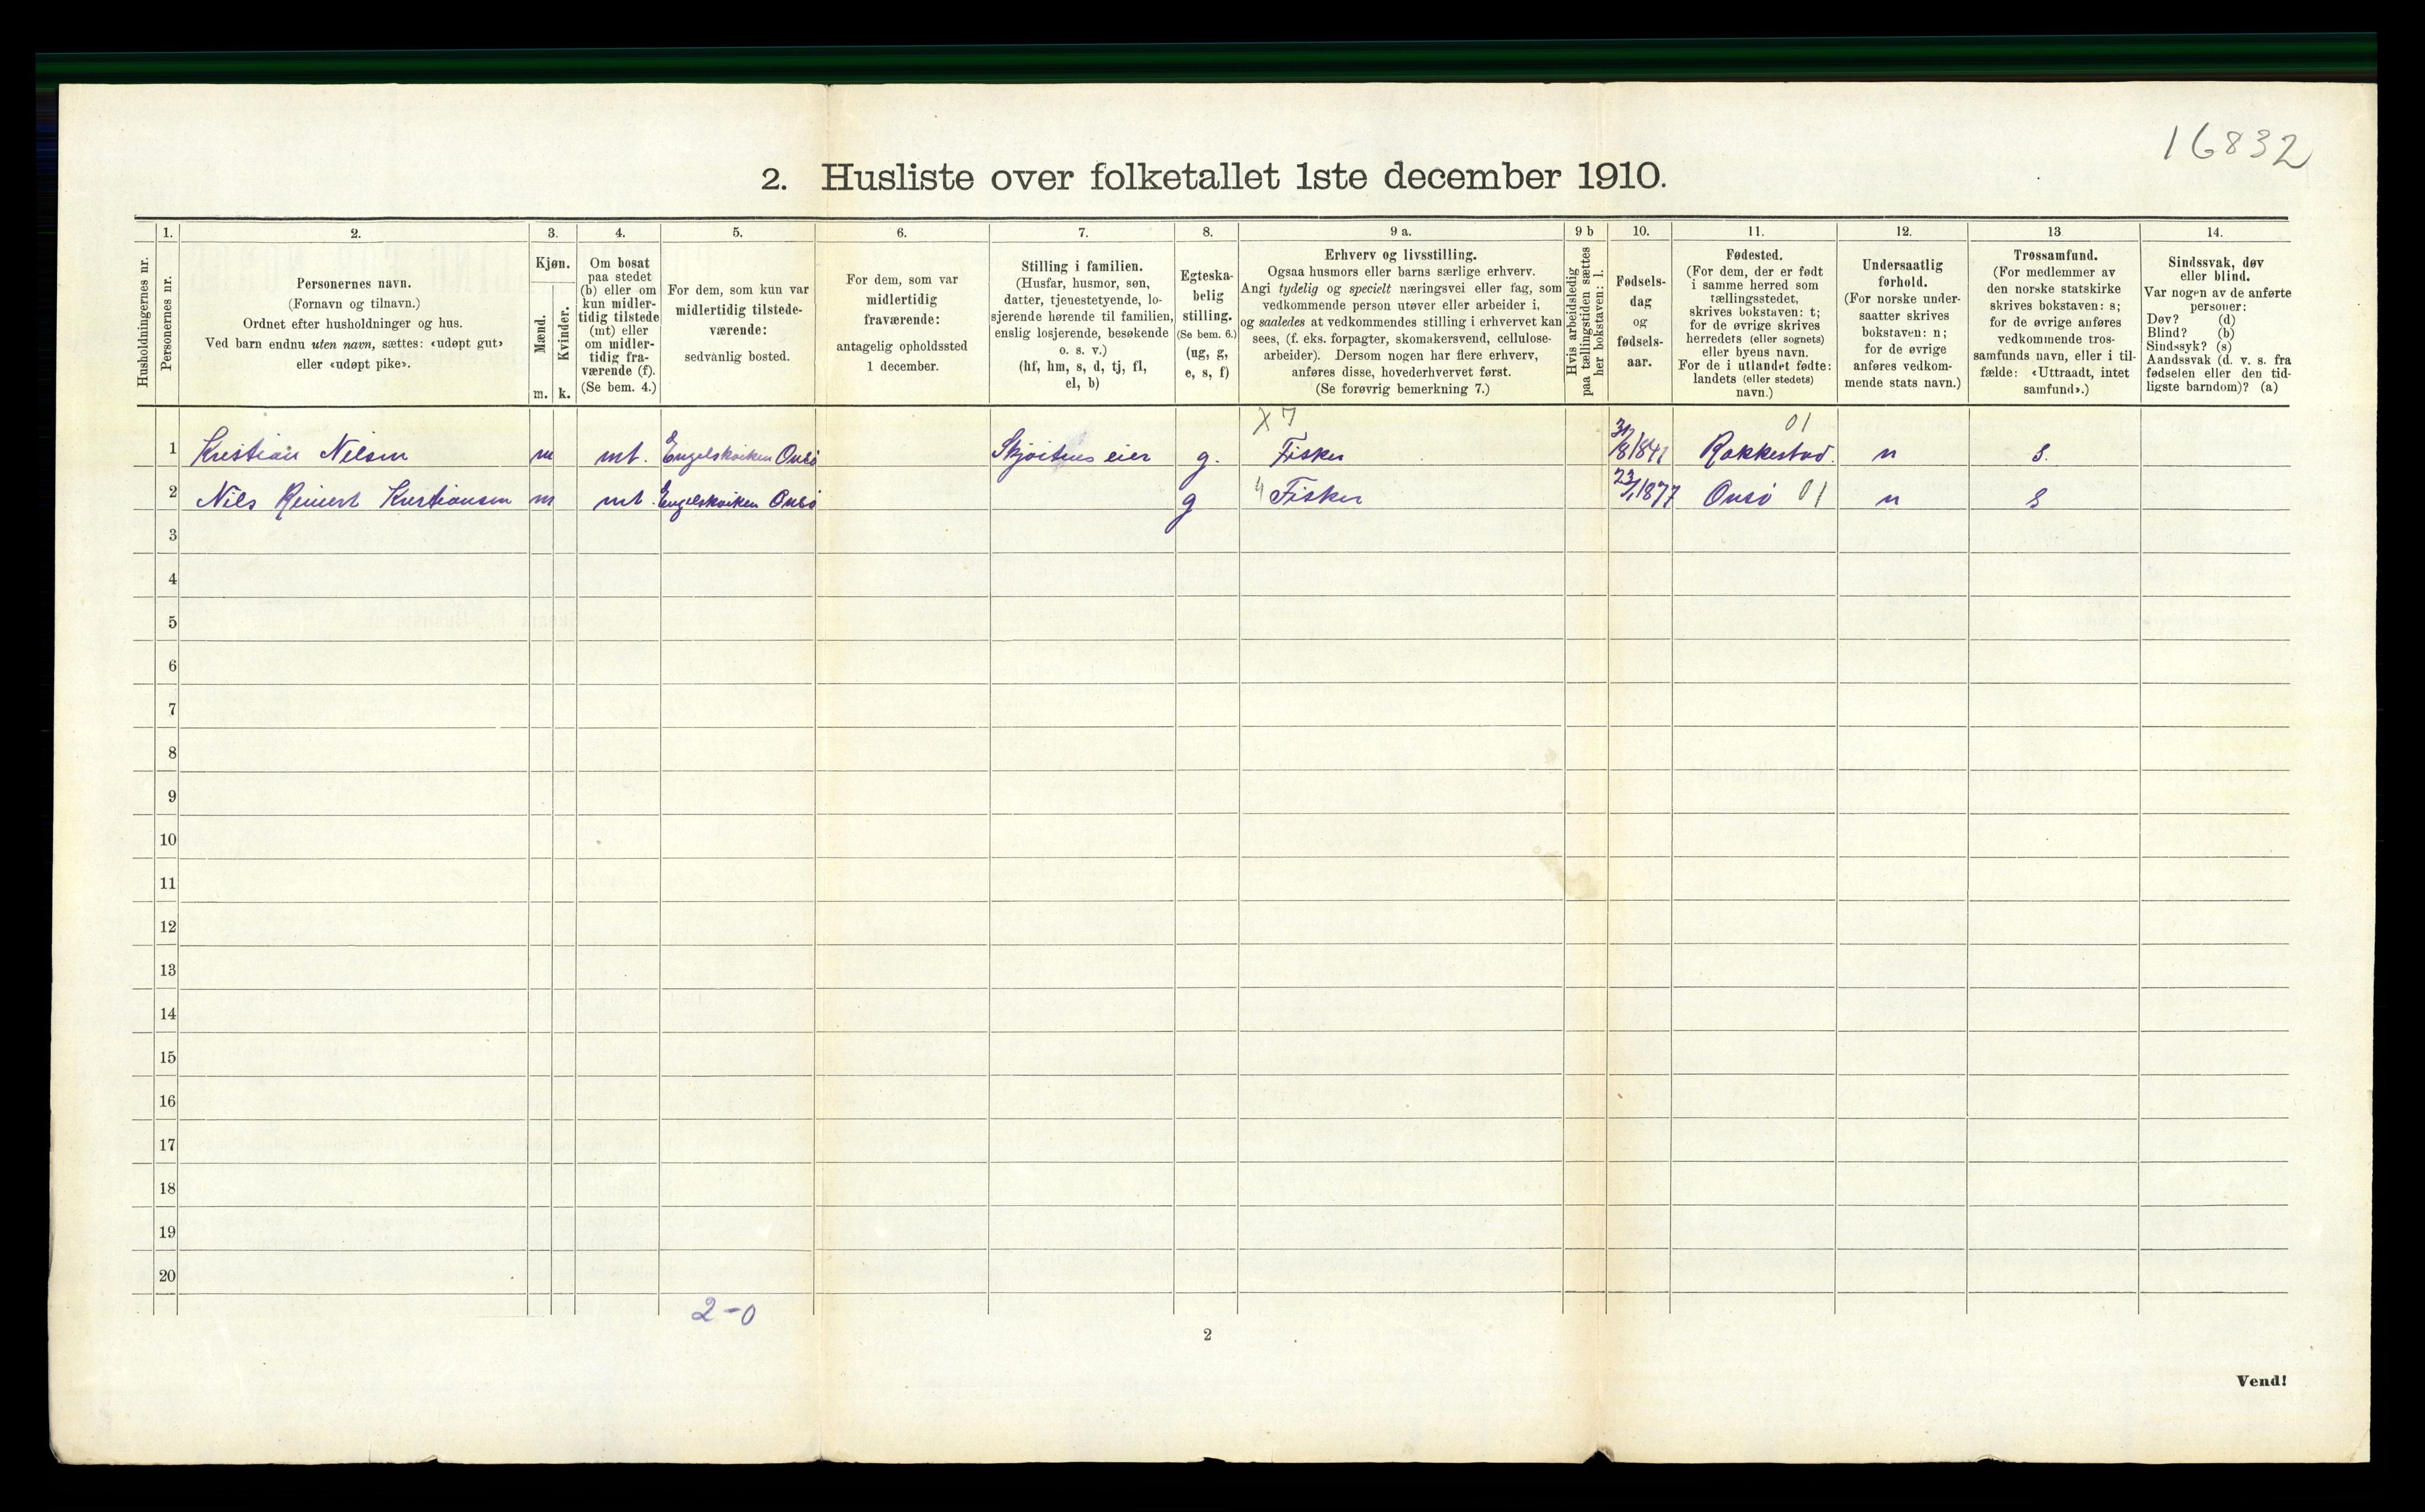 16832
2. Husliste over folketallet 1ste december 1910.
Husholdningernes nr.
1.
Personernes nr.
2.
Personernes navn.
(Fornavn og tilnavn.)
Ordnet efter husholdninger og hus.
Ved barn endnu uten navn, sættes: «udøpt gut»
eller «udøpt pike».
3.
Kjøn.
Mænd.
Kvinder.
m. k.
4.
Om bosat
paa stedet
(b) eller om
kun midler-
tidig tilstede
(mt) eller
om midler-
tidig fra-
værende (f).
(Se bem. 4.)
5.
For dem, som kun var
midlertidig tilstede-
værende:
sedvanlig bosted.
6.
For dem, som var
midlertidig
fraværende:
antagelig opholdssted
1 december.
7.
Stilling i familien.
(Husfar, husmor, søn,
datter, tjenestetyende, lo-
sjerende hørende til familien,
enslig losjerende, besøkende
o. s. v.)
(hf, hm, s, d, tj, fl,
el, b)
8.
Egteska-
belig
stilling.
(Se bem. 6.)
(ug, g,
e, s, f)
9 a.
Erhverv og livsstilling.
Ogsaa husmors eller barns særlige erhverv.
Angi tydelig og specielt næringsvei eller fag, som
vedkommende person utøver eller arbeider i,
og saaledes at vedkommendes stilling i erhvervet kan
sees, (f. eks. forpagter, skomakersvend, cellulose-
arbeider). Dersom nogen har flere erhverv,
anføres disse, hovederhvervet først.
(Se forøvrig bemerkning 7.)
9 b
Hvis arbeidsledig
paa tællingstiden sættes
her bokstaven: l.
10.
Fødsels-
dag
og
fødsels-
aar.
11.
Fødested.
(For dem, der er født
i samme herred som
tællingsstedet,
skrives bokstaven: t;
for de øvrige skrives
herredets (eller sognets)
eller byens navn.
For de i utlandet fødte:
landets (eller stedets)
navn.)
12.
Undersaatlig
forhold.
(For norske under-
saatter skrives
bokstaven: n;
for de øvrige
anføres vedkom-
mende stats navn.)
13
Trossamfund.
(For medlemmer av
den norske statskirke
skrives bokstaven: s;
for de øvrige anføres
vedkommende tros-
samfunds navn, eller i til-
fælde: «Uttraadt, intet
samfund».)
14.
Sindssvak, døv
eller blind.
Var nogen av de anførte
personer:
Døv? (d)
Blind? (b)
Sindssyk? (s)
Aandssvak (d. v. s. fra
fødselen eller den tid-
ligste barndom)? (a)
X 7 01
1 Kristian Nilsen m mt. Engelskviken Onsö Skjöitens eier g. Fisker 1841 Rakkestad. n s.
2 Nils Reinert Kristiansen m mt. Engelskviken Onsö g Fisker 1877 Onsö 01 n s
3
4
5
6
7
8
9
10
11
12
13
14
15
16
17
18
19
20
2-0
2
Vend!